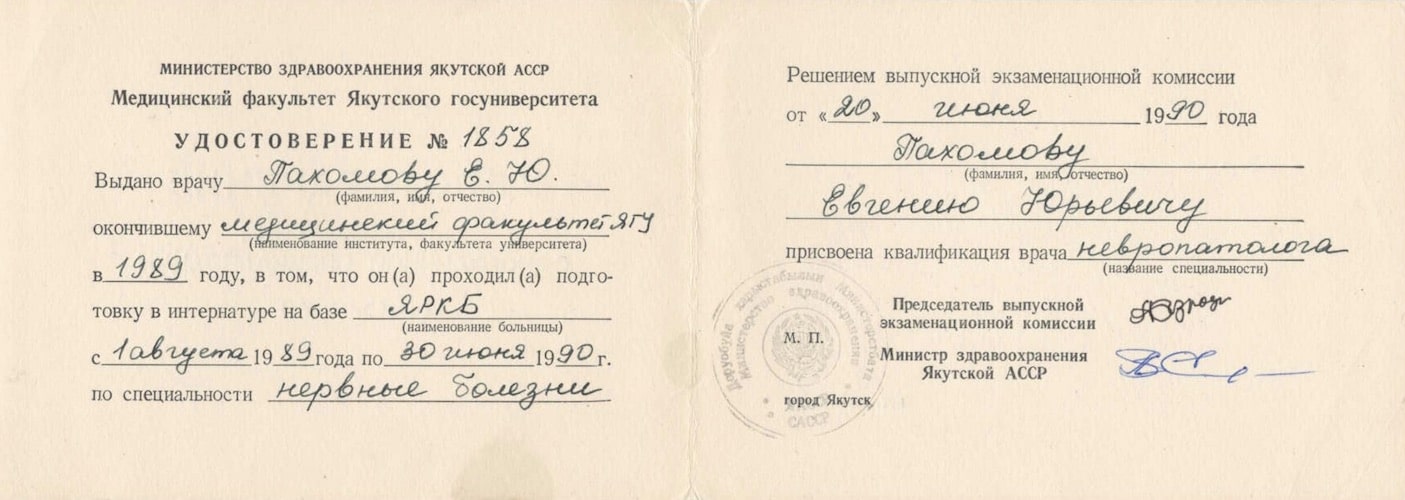 МИНИСТЕРСТВО ЗДРАВООХРАНЕНИЯ ЯКУТСКОЙ АССР
Медицинский факультет Якутского госуниверситета
УДОСТОВЕРЕНИЕ № 1858
Выдано врачу Пахомову Е. Ю.
(фамилия, имя, отчество)
окончившему медицинский факультет ЯГУ
(наименование института, факультета университета)
в 1989 году, в том, что он (а) проходил (а) подго-
товку в интернатуре на базе ЯРКБ
(наименование больницы)
с 1 августа 1989 года по 30 июня 1990 г.
по специальности нервные болезни
Решением выпускной экзаменационной комиссии
от «20» июня 1990 года
Пахомову
(фамилия, имя, отчество)
Евгению Юрьевичу
присвоена квалификация врача невропатолога
(название специальности)
Председатель выпускной
экзаменационной комиссии
М. П.
Министр здравоохранения
Якутской АССР
город Якутск
Министерство здравоохранения
САССР